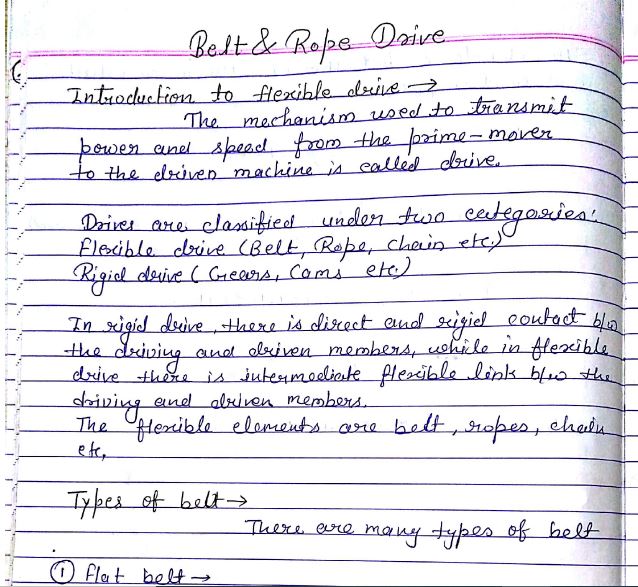 Belt & Rope Drive
Introduction to flexible drive →
The mechanism used to transmit
power and speed from the prime-mover
to the driven machine is called drive.
Drives are classified under two categories:
Flexible drive (Belt, Rope, Chain etc.)
Rigid drive (Gears, Cams etc.)
In rigid drive, there is direct and rigid contact b/w
the driving and driven members, while in flexible
drive there is intermediate flexible link b/w the
driving and driven members.
The flexible elements are belt, ropes, chain
etc,
Types of belt →
There are many types of belt
① Flat belt →